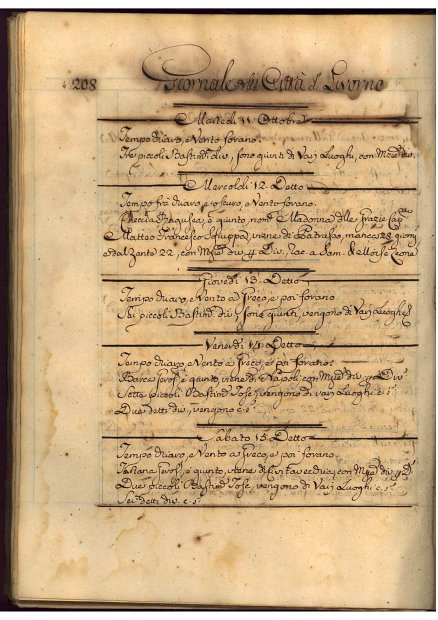 208 Giornale della Città di Livorno
Martedi 11. Ottobre
Tempo chiaro, e Vento forano.
Tre piccoli Bastim. div. sono giunti di Varj Luoghi, con div.
Mercoldi 12. Detto
Tempo fra chiaro, e oscuro, e Vento forano.
Checcia Ragusea, è giunto, nom. Madonna delle Grazie Cap.
Matteo Francesco viene di Patrasso, manca 28. giorni
e dal Zante 22, con div. Rac. a Sam. Leone
Giovedi 13. Detto
Tempo chiaro, e Vento a Greco, e poi forano.
Sei piccoli Bastim. div. sono giunti, vengono di Varj Luoghi
Venerdi 14. Detto
Tempo chiaro, e Vento a Greco, e poi forano.
Barca è giunto, viene di Napoli con div. p. Div.
Sette piccoli Bastim. Tos. vengono di Varj Luoghi c. s.
Due detti div. vengono c. s.
Sabato 15. Detto
Tempo chiaro, e Vento a Greco, e poi forano.
Tartana è giunto, viene di Civitavecchia, con div. p. D.
Due piccoli Bastim. Tos. vengono di Varj Luoghi c. s.
Sei detti div. c. s.